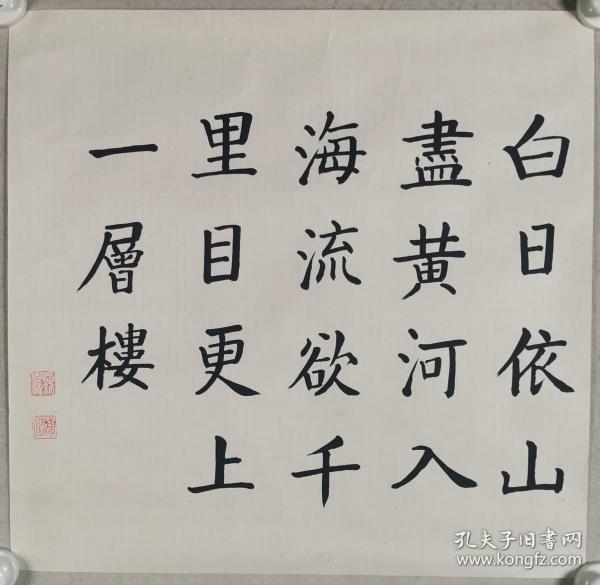 白日依山
盡黄河入
海流欲千
里目更上
一層樓
孔夫子旧書网
www.kongfz.com